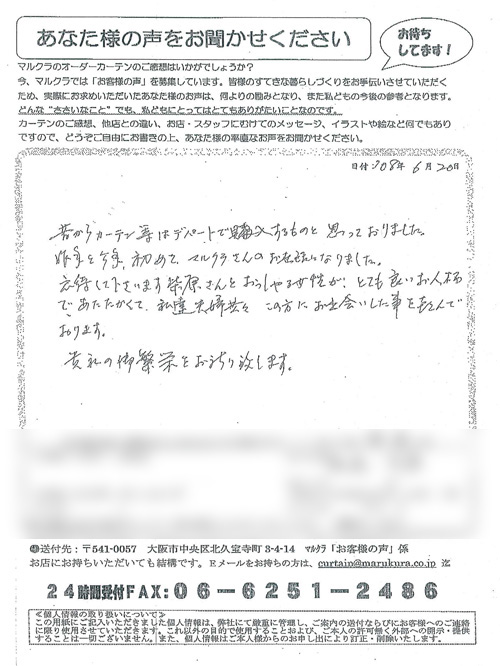 あなた様の声をお聞かせください
お待ち
してます!
マルクラのオーダーカーテンのご感想はいかがでしょうか?
今、マルクラでは「お客様の声」を募集しています。皆様のすてきな暮らしづくりをお手伝いさせていただく
ため、実際にお求めいただいたあなた様のお声は、何よりの励みとなり、また私どもの今後の参考となります。
どんな“ささいなこと”でも、私どもにとってはとてもありがたいことなのです。
カーテンのご感想、他店との違い、お店・スタッフにむけてのメッセージ、イラストや絵など何でもあり
ですので、どうぞご自由にお書きの上、あなた様の率直なお声をお聞かせください。
日付 '08年 6月20日
昔からカーテン等はデパートで購入するものと思っておりました。
昨年と今年、初めて、マルクラさんのお世話になりました。
応待して下さいます栄原さんとおっしゃる女性が、とても良いお人柄
であたたかくて、私達夫婦共々 この方にお出会いした事を喜んで
おります。
貴社の御繁栄をお祈り致します。
送付先:〒541-0057 大阪市中央区北久宝寺町3-4-14 マルクラ「お客様の声」係
お店にお持ちいただいても結構です。Eメールをお持ちの方は、curtain@marukura.co.jp 迄
24時間受付FAX:06-6251-2486
≪個人情報の取り扱いについて≫
この用紙にご記入いただきました個人情報は、弊社にて厳重に管理し、ご案内の送付ならびにお客様へのご連絡
に限り使用させていただきます。これ以外の目的で使用することおよび、ご本人の許可無く外部への開示・提供
することは一切ございません。また、個人情報はご本人様からのお申し出により訂正・削除いたします。